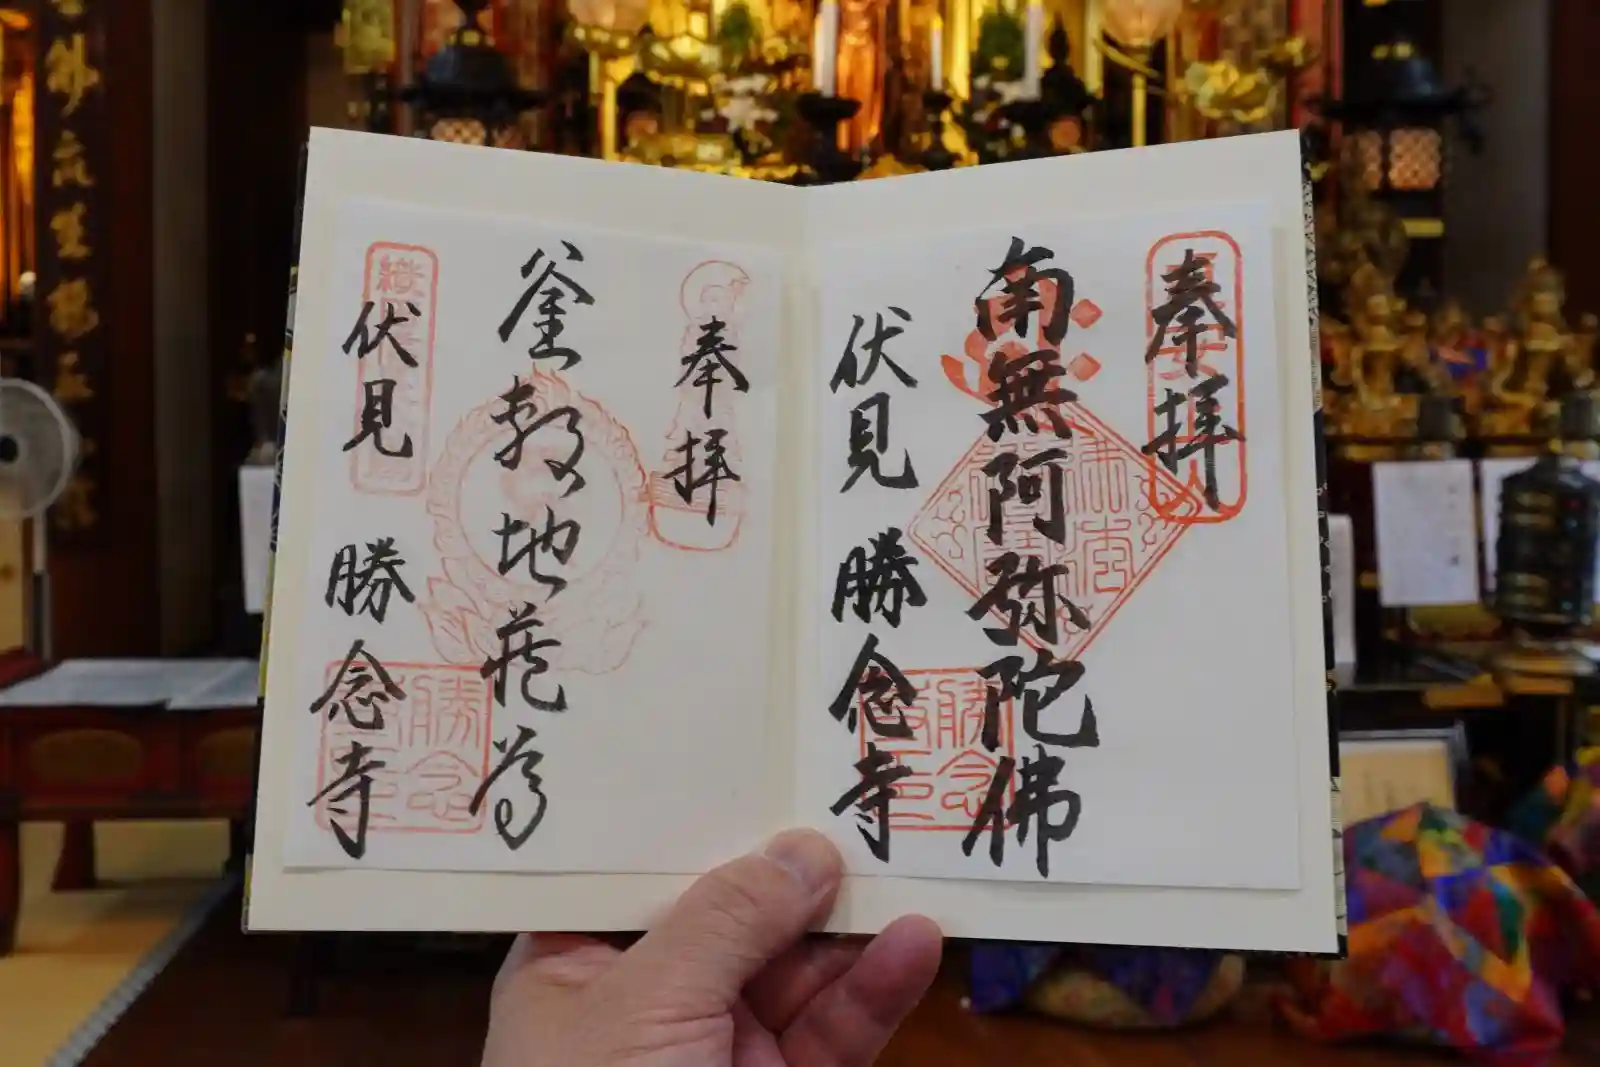 奉拝
南無阿弥陀佛
伏見 勝念寺
奉拝
釜敷地蔵尊
伏見 勝念寺
勝念
勝念